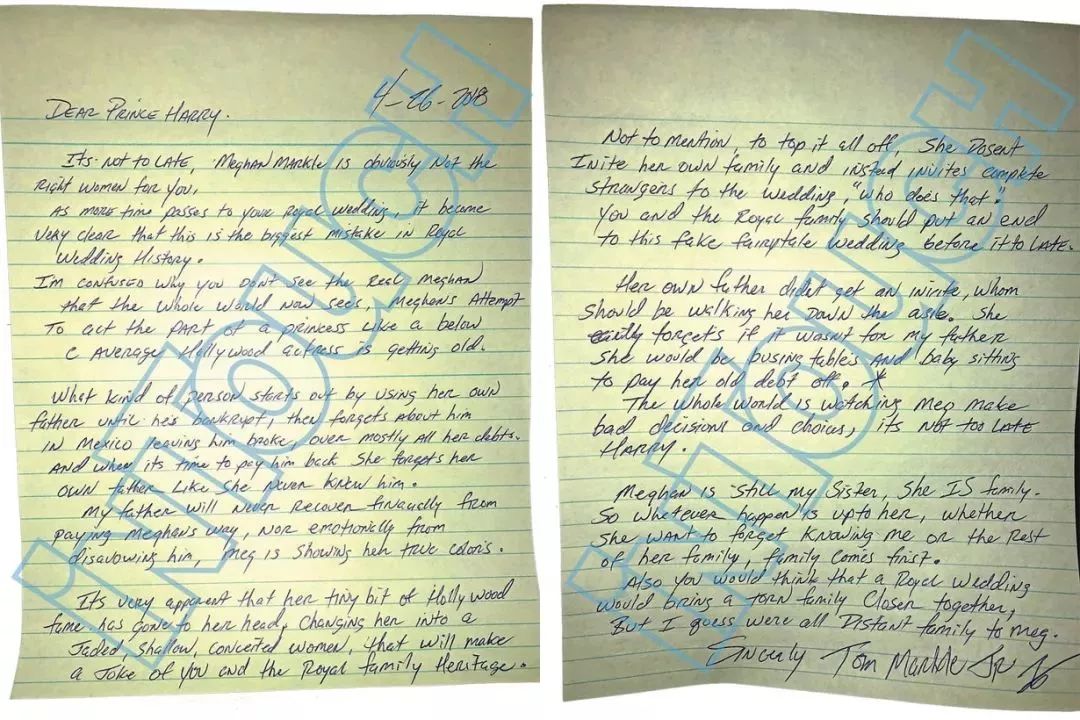 4-26-2018
DEAR PRINCE HARRY.
Its not to LATE, Meghan Markle is obviously Not the
right women for you.
As more time passes to your Royal Wedding, it became
very clear that this is the biggest mistake in Royal
Wedding History.
Im confused why you don't see the Real Meghan
that the whole world now sees, Meghan's Attempt
To act the part of a princess like a below
C Average Hollywood actress is getting old.
What kind of person starts out by using her own
father until he's bankrupt, then forgets about him
in Mexico leaving him broke, over mostly all her debts.
And when its time to pay him back she forgets her
own father like she never knew him.
My father will never recover financally from
paying Meghan's way, nor emotionally from
disavowing him, Meg is showing her true colors.
Its very apparent that her tiny bit of Hollywood
fame has gone to her head, changing her into a
Jaded, shallow, conceited women, that will make
a Joke of you and the Royal family Heritage.
Not to mention, to top it all off, She Dosent
Inite her own family and instead invites complete
strangers to the wedding, "who does that."
You and the Royal family should put an end
to this fake fairytale wedding before it to LATE.
Her own father didn't get an invite, whom
should be walking her down the asle. She
forgets if it wasn't for my father
she would be busing tables and baby sitting
to pay her old debt off. *
The whole world is watching Meg make
bad decisions and choices, its NOT too LATE
HARRY.
Meghan is still my Sister, She IS family.
So whatever happen is up to her, whether
she want to forget knowing me or the rest
of her family, family comes first.
Also you would think that a Royal wedding
would bring a torn family closer together,
But I guess were all Distant family to Meg.
Sincerly Tom Markle Jr
INTOUCH
INTOUCH